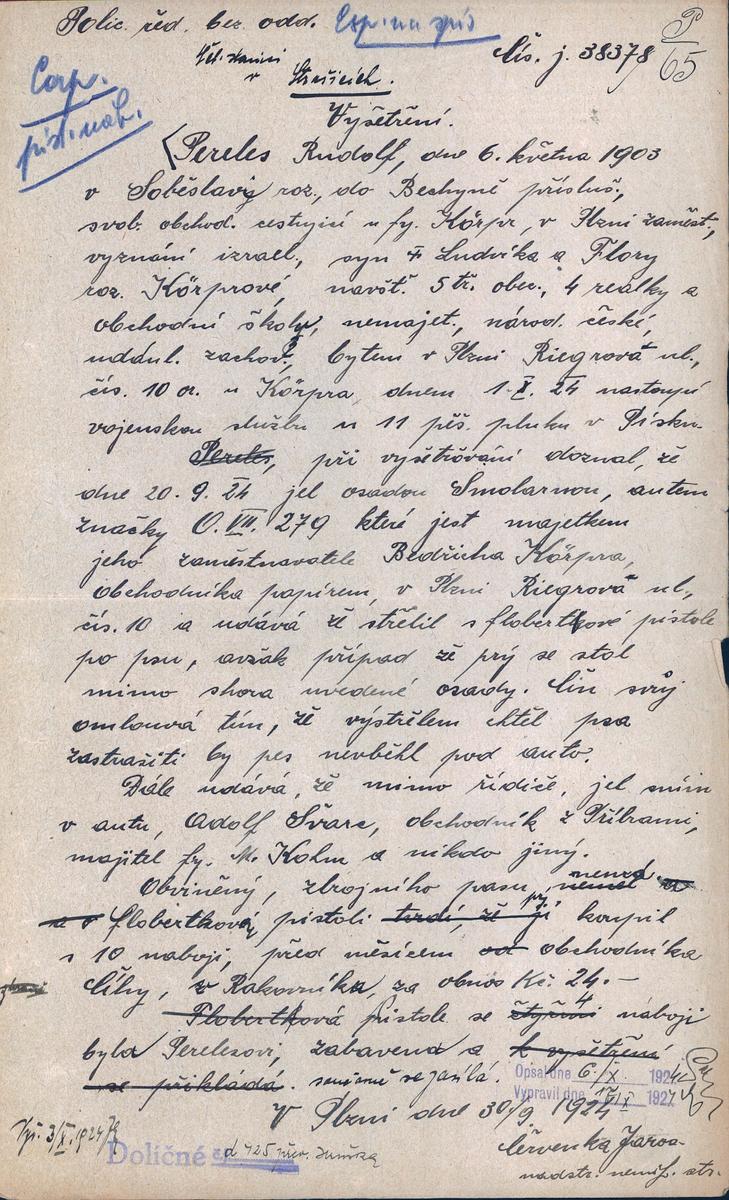 Polic. řed. bez. odd. Esp. na spis
Čet. stanici
v
Strašicích.
Čís. j. 38378
P/65
Corp.
píst. náb.
Vyšetření.
Pereles Rudolf, dne 6. května 1903
v Soběslavi roz., do Bechyně přísluš.,
svob. obchod. cestující u fy. Körpr, v Plzni zaměst.,
vyznání izrael., syn † Ludvíka a Flory
roz. Körprové, navšt. 5 tř. obec., 4 reálky a
obchodní školy, nemajet., národ. české,
udánl. zachov., bytem v Plzni Riegrova ul.,
čís. 10 a. u Körpra dnem 1.X.24 nastoupí
vojenskou službu u 11 pěš. pluku v Písku.
Pereles, při vyšetřování doznal, že
dne 20. 9. 24 jel osadou Smolarnou, autem
značky O.VIII. 279 které jest majetkem
jeho zaměstnavatele Bedřicha Körpra,
obchodníka papírem, v Plzni Riegrova ul.,
čís. 10 a udává že střelil s flobertkové pistole
po psu, avšak případ že prý se stal
mimo shora uvedené osady. Čin svůj
omlouvá tím, že výstřelem chtěl psa
zastrašiti by pes nevběhl pod auto.
Dále udává, že mimo řidiče, jel s ním
v autu, Adolf Švarc, obchodník z Příbrami,
majitel fy. M. Kohn a nikdo jiný.
Obviněný, zbrojního pasu, neměl
flobertkovou pistoli tvrdí, že prý ji koupil
s 10 naboji, před měsícem od obchodníka
Číhy, v Rakovníka, za obnos Kč. 24.–
Flobertková pistole se čtyřmi 4 náboji
byla Perelesovi, zabavena a k vyšetření
se přikládá. současně se zasílá.
Opsal dne 6./X. 1924
Vypravil dne 1924
V Plzni dne 30/9 1924.
Červenka Jaros.
nadstr. nemif. str.
Vyř. 3/X. 1924
Doličné čj. d 425 přev.